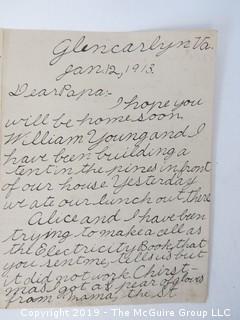 Glencarlyn Va.
Jan. 12, 1913.
Dear Papa:-
I hope you
will be home soon.
William Young and I
have been building a
tent in the pines in front
of our house. Yesterday
we ate our lunch out there.
Alice and I have been
trying to make a cell as
the Electricity Book, that
you sent me, tells us but
it did not work. Christ-
mas I got a pear of gloves
from mama, the St
Copyright 2019 - The McGuire Group LLC